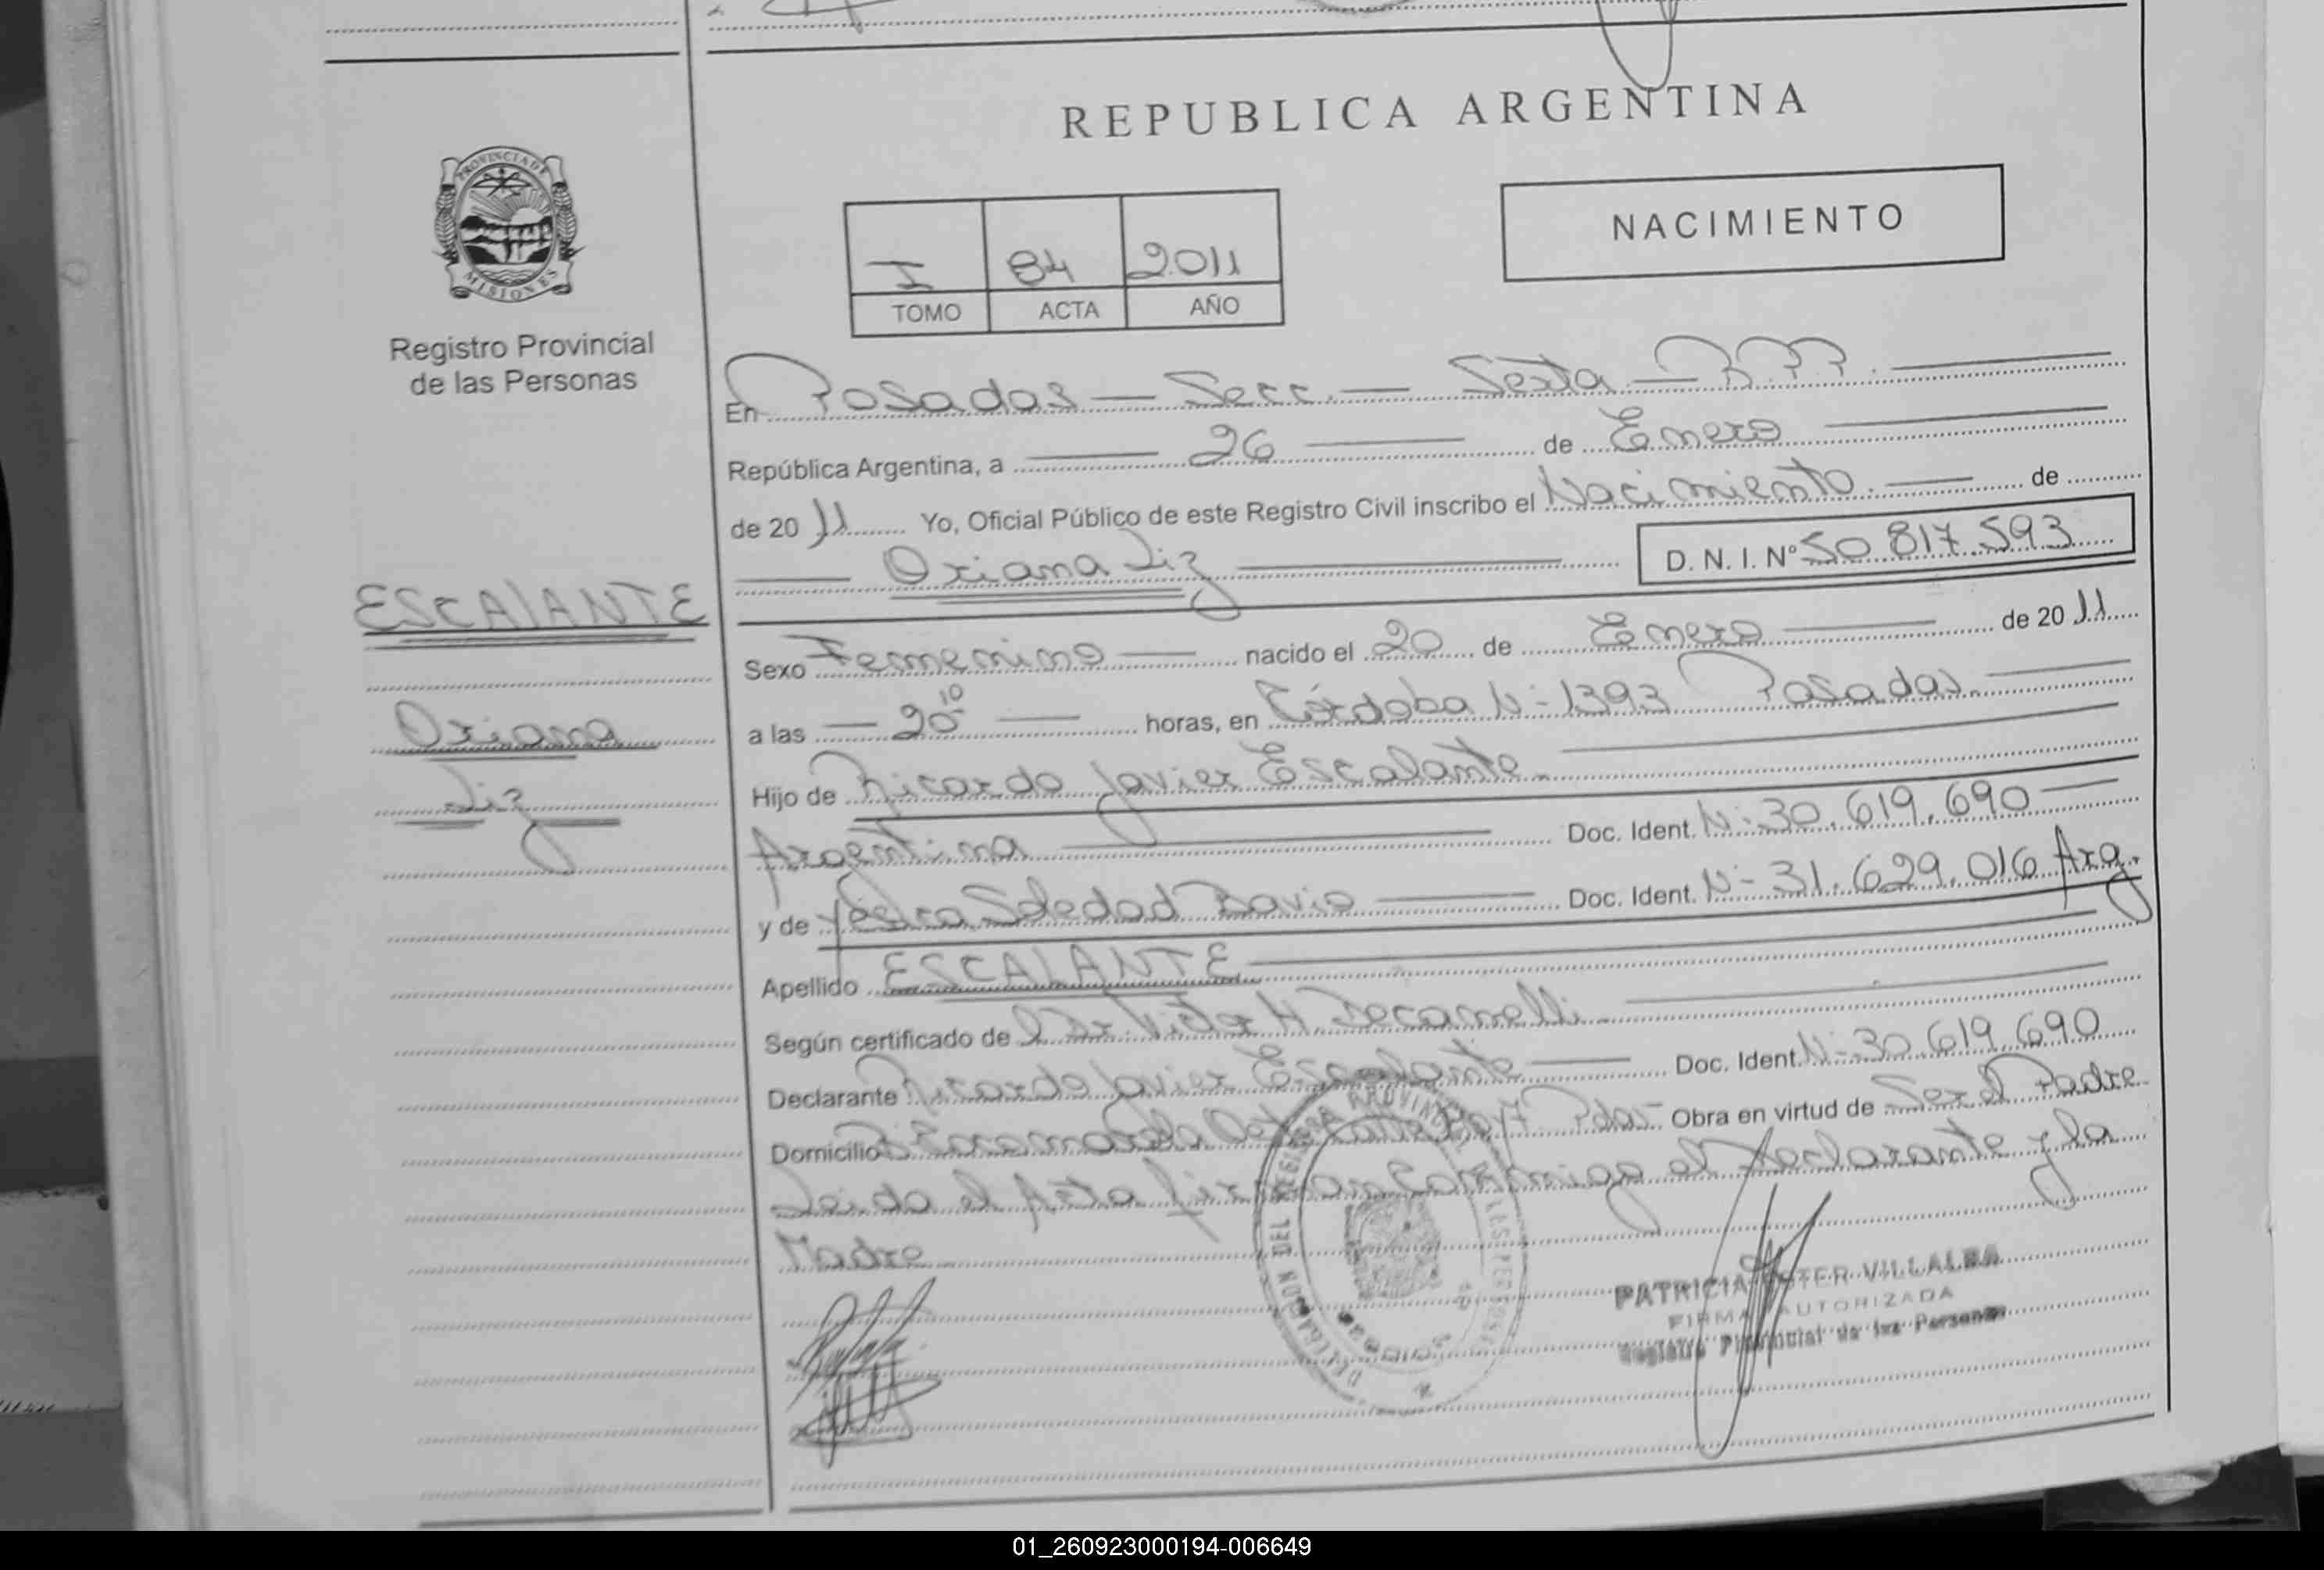 REPUBLICA ARGENTINA
PROVINCIA DE
MISIONES
Registro Provincial
de las Personas
I 84 2011
TOMO ACTA AÑO
NACIMIENTO
En Posadas — Secc. — Sexta — R.P.P. —
República Argentina, a — 26 — de Enero —
de 20 11 Yo, Oficial Público de este Registro Civil inscribo el Nacimiento. — de
— Oriana Liz — D. N. I. Nº 50 817.593
ESCALANTE
Oriana
Liz
Sexo Femenino — nacido el 20 de Enero — de 20 11
a las — 20 10 — horas, en Córdoba N- 1393 Posadas. —
Hijo de Ricardo Javier Escalante. —
Argentina — Doc. Ident. N- 30.619.690 —
y de Soledad — Doc. Ident. N- 31.629.016 Arg.
Apellido ESCALANTE —
Según certificado de —
Declarante Ricardo Javier Escalante — Doc. Ident. N- 30.619.690
Domicilio Obra en virtud de Ser el Padre
Leida el Acta la Declarante y la
Madre
PATRICIA ESTER VILLALBA
FIRMA AUTORIZADA
Registro Provincial de las Personas
01_260923000194-006649